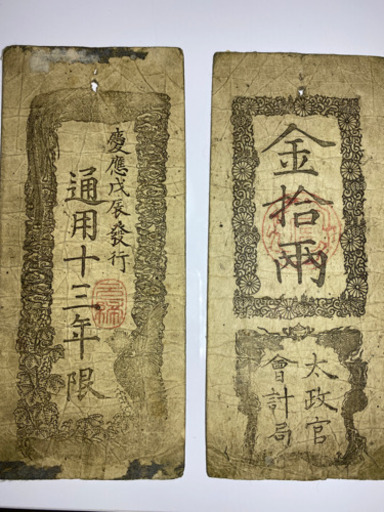 慶應戊辰發行
通用十三年限
金拾兩
太政官
會計局